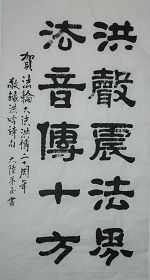 洪聲震法界
法音傳十方
賀法輪大法洪傳二十周年
敬錄洪吟詩句 大陸弟子書